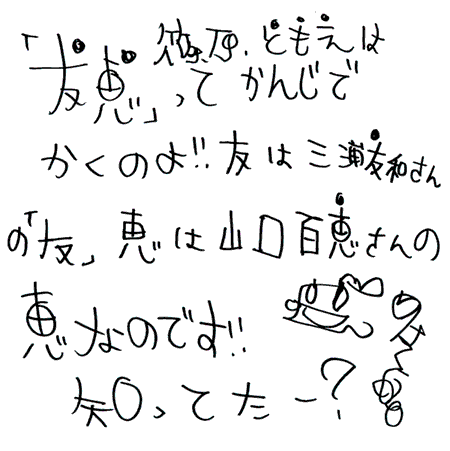 篠原ともえは
「友恵」ってかんじで
かくのよ!!友は三浦友和さん
の「友」恵は山口百恵さんの
恵なのです!!
知ってたー?